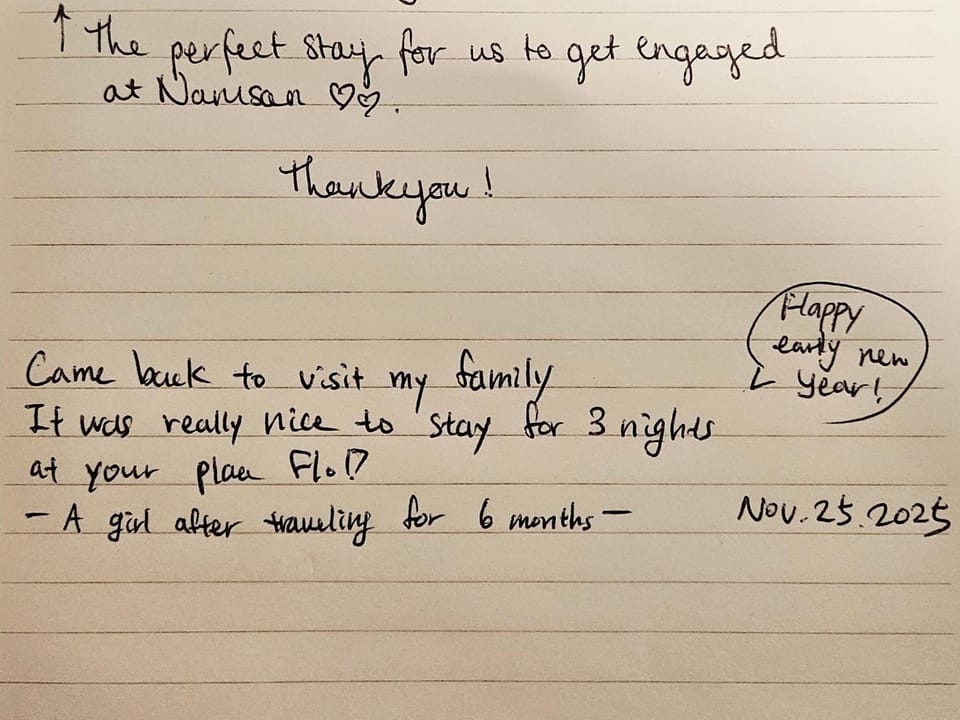 ↑ The perfect stay for us to get engaged
at Namsan ♡♡.
Thankyou!
Happy
early new
year!
Came back to visit my family
It was really nice to stay for 3 nights
at your place Flo.
- A girl after traveling for 6 months -
Nov. 25. 2025